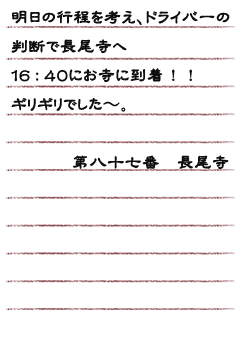 明日の行程を考え、ドライバーの
判断で長尾寺へ
16：40にお寺に到着！！
ギリギリでした～。
第八十七番　長尾寺